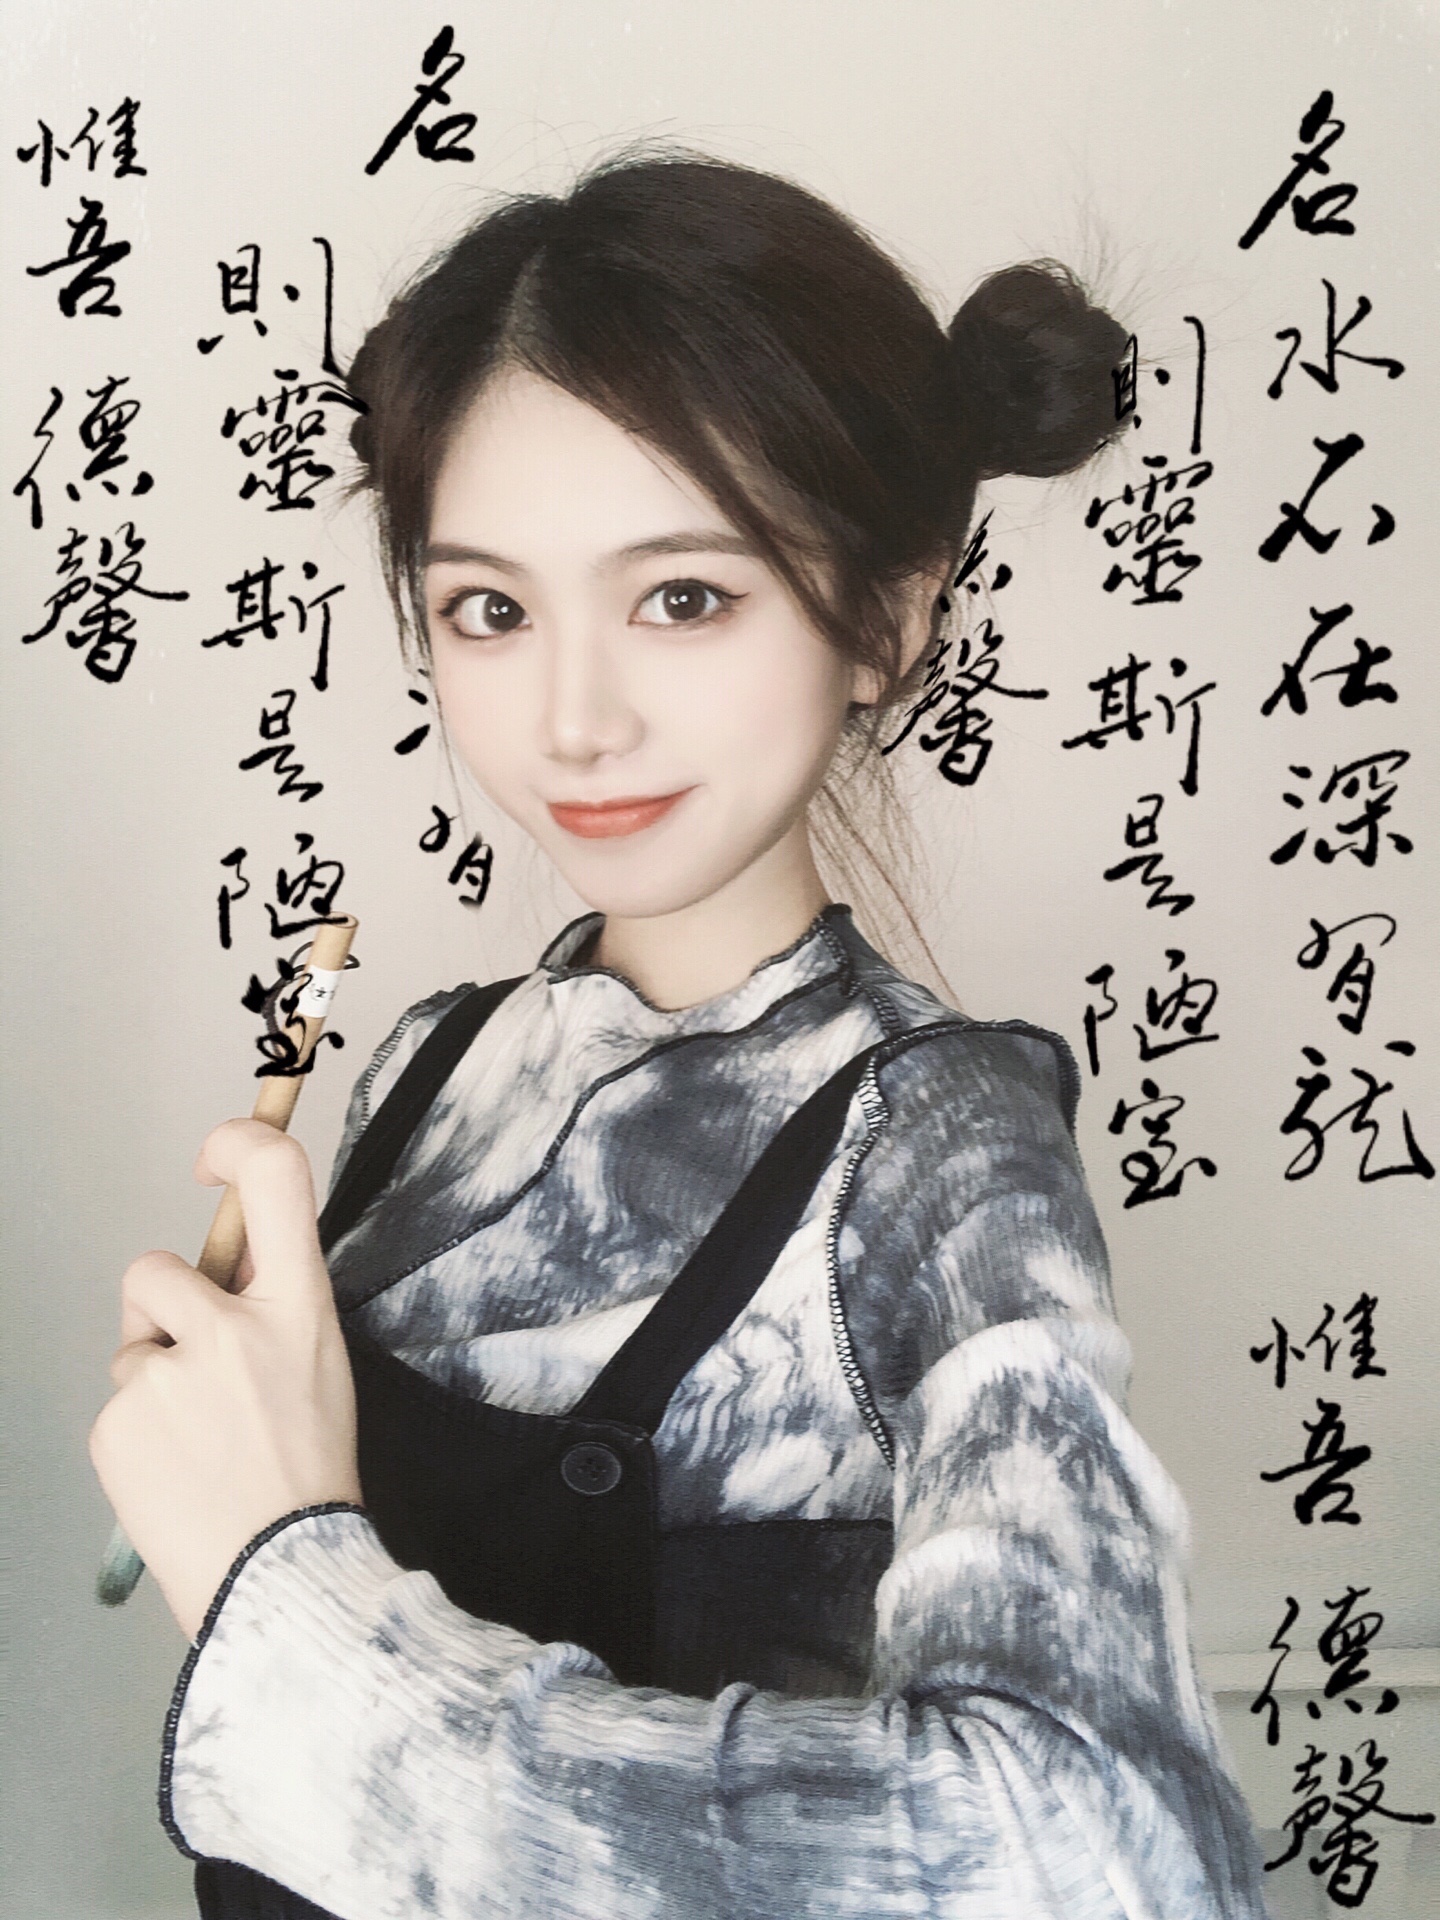 名
水不在深有龍
則靈斯是陋室
惟吾德馨
馨
名
有
則靈斯是陋室
惟吾德馨